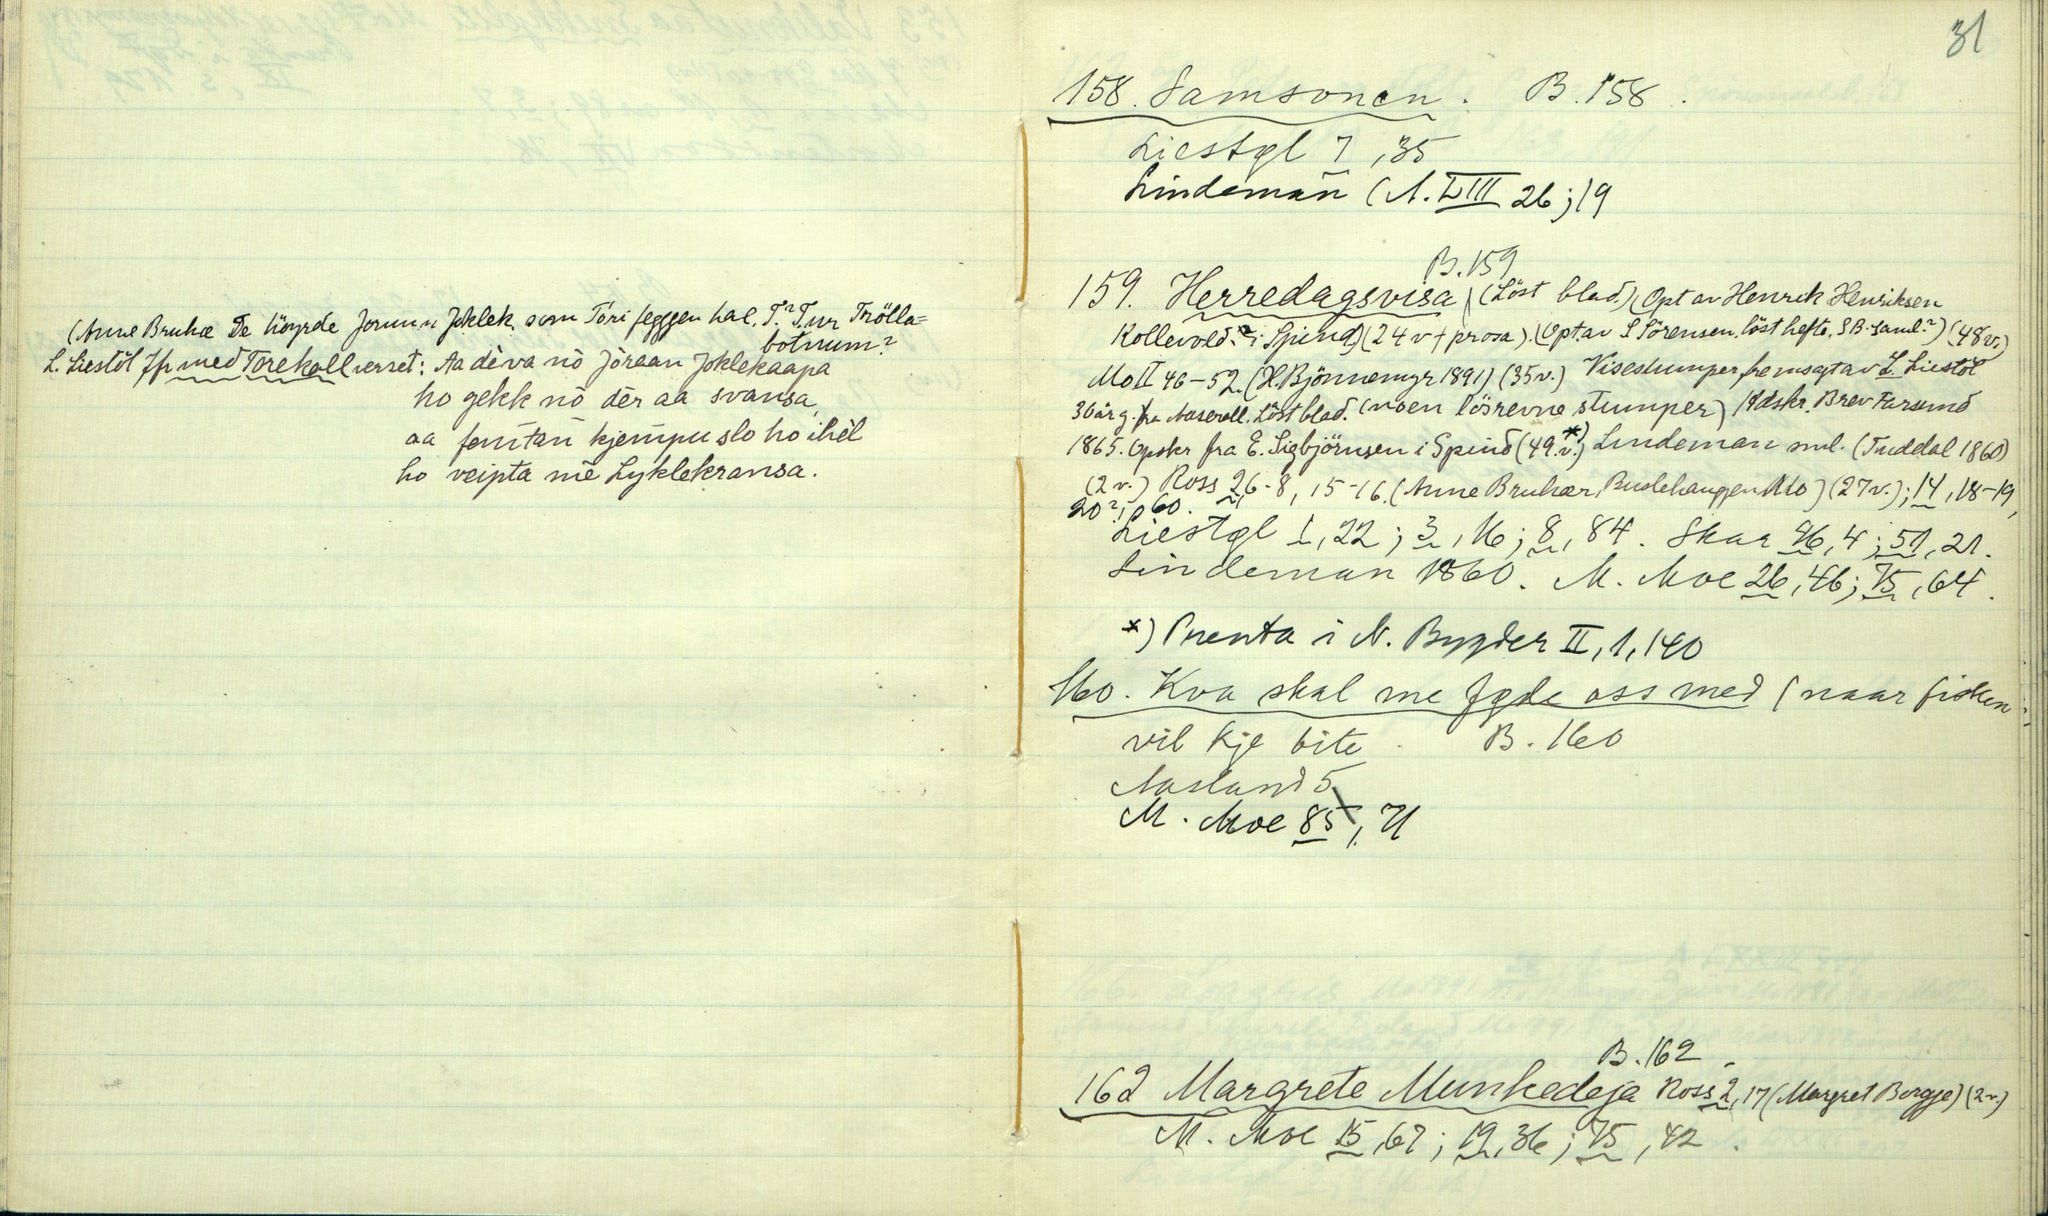 (Anne Bruhæ De höyrde Jorunn Joklek. som Tóri feggjen hae. T. ? T. ur Trölla=
botnum?
L. Liestöl Jfr med Torekallverset: Aa dèva nò Jöraan Joklekaapa
ho gekk nò dèr aa svansa,
aa femtan kjempu slo ho ihèl
ho veipta mè Lyklekransa.
31
158. Samsonen. B. 158.
Liestøl 7, 35
Lindeman (A. LIII 26; 19
B. 159
159. Herredagsvisa (Löst blad.) Opt av Henrik Henriksen
Kollevold. ? i Spind) (24 v + prosa). (Opt. av S Sörensen. löst hefte. S B. saml. ?) (48 v.)
Mo II 46-52. (H. Bjönnemyr 1891) (35 v.) Visestumper fremsagt av L. Liestöl
30 år g. fra Aaserall. Löst blad. (noen lösrevne stumper) Hdskr. Brev Farsund
1865. Opskr fra E. Sigbjörnsen i Spind (49 v.*) Lindeman ml. (Tuddal 1860)
(2 v.) Ross 26-8, 15-16. (Anne Bruhær, Mo) (27 v.); 14, 18-19,
20?; 60.
Liestøl 1, 22; 3, 16; 8, 84. Skar 46, 4; 51, 21.
Lindeman 1860. M. Moe 26, 46; 75, 64.
*) Prenta i N. Bygder II, 1, 140
160. Kva skal me føde oss med (naar fisken
vil kje bite. B. 160
Aasland 5
M. Moe 85, 71
B. 162
162 Margrete Munkedeja Ross 2, 17 (Margret Borgje) (2 v.)
M. Moe 15, 67; 19, 36; 75, 42.